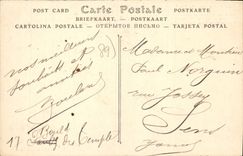 POST CARD Carte Postale POSTKARTE
BRIEFKAART. - POSTKARTE
CARTOLINA POSTALE - ОТКРЫТОЕ ПИСЬМО - TARJETA POSTAL
nos meilleurs
souhaits et
amitiés
(89)
17 Bould du Temple
Madame et Monsieur
Paul
rue
Sens
Yonne